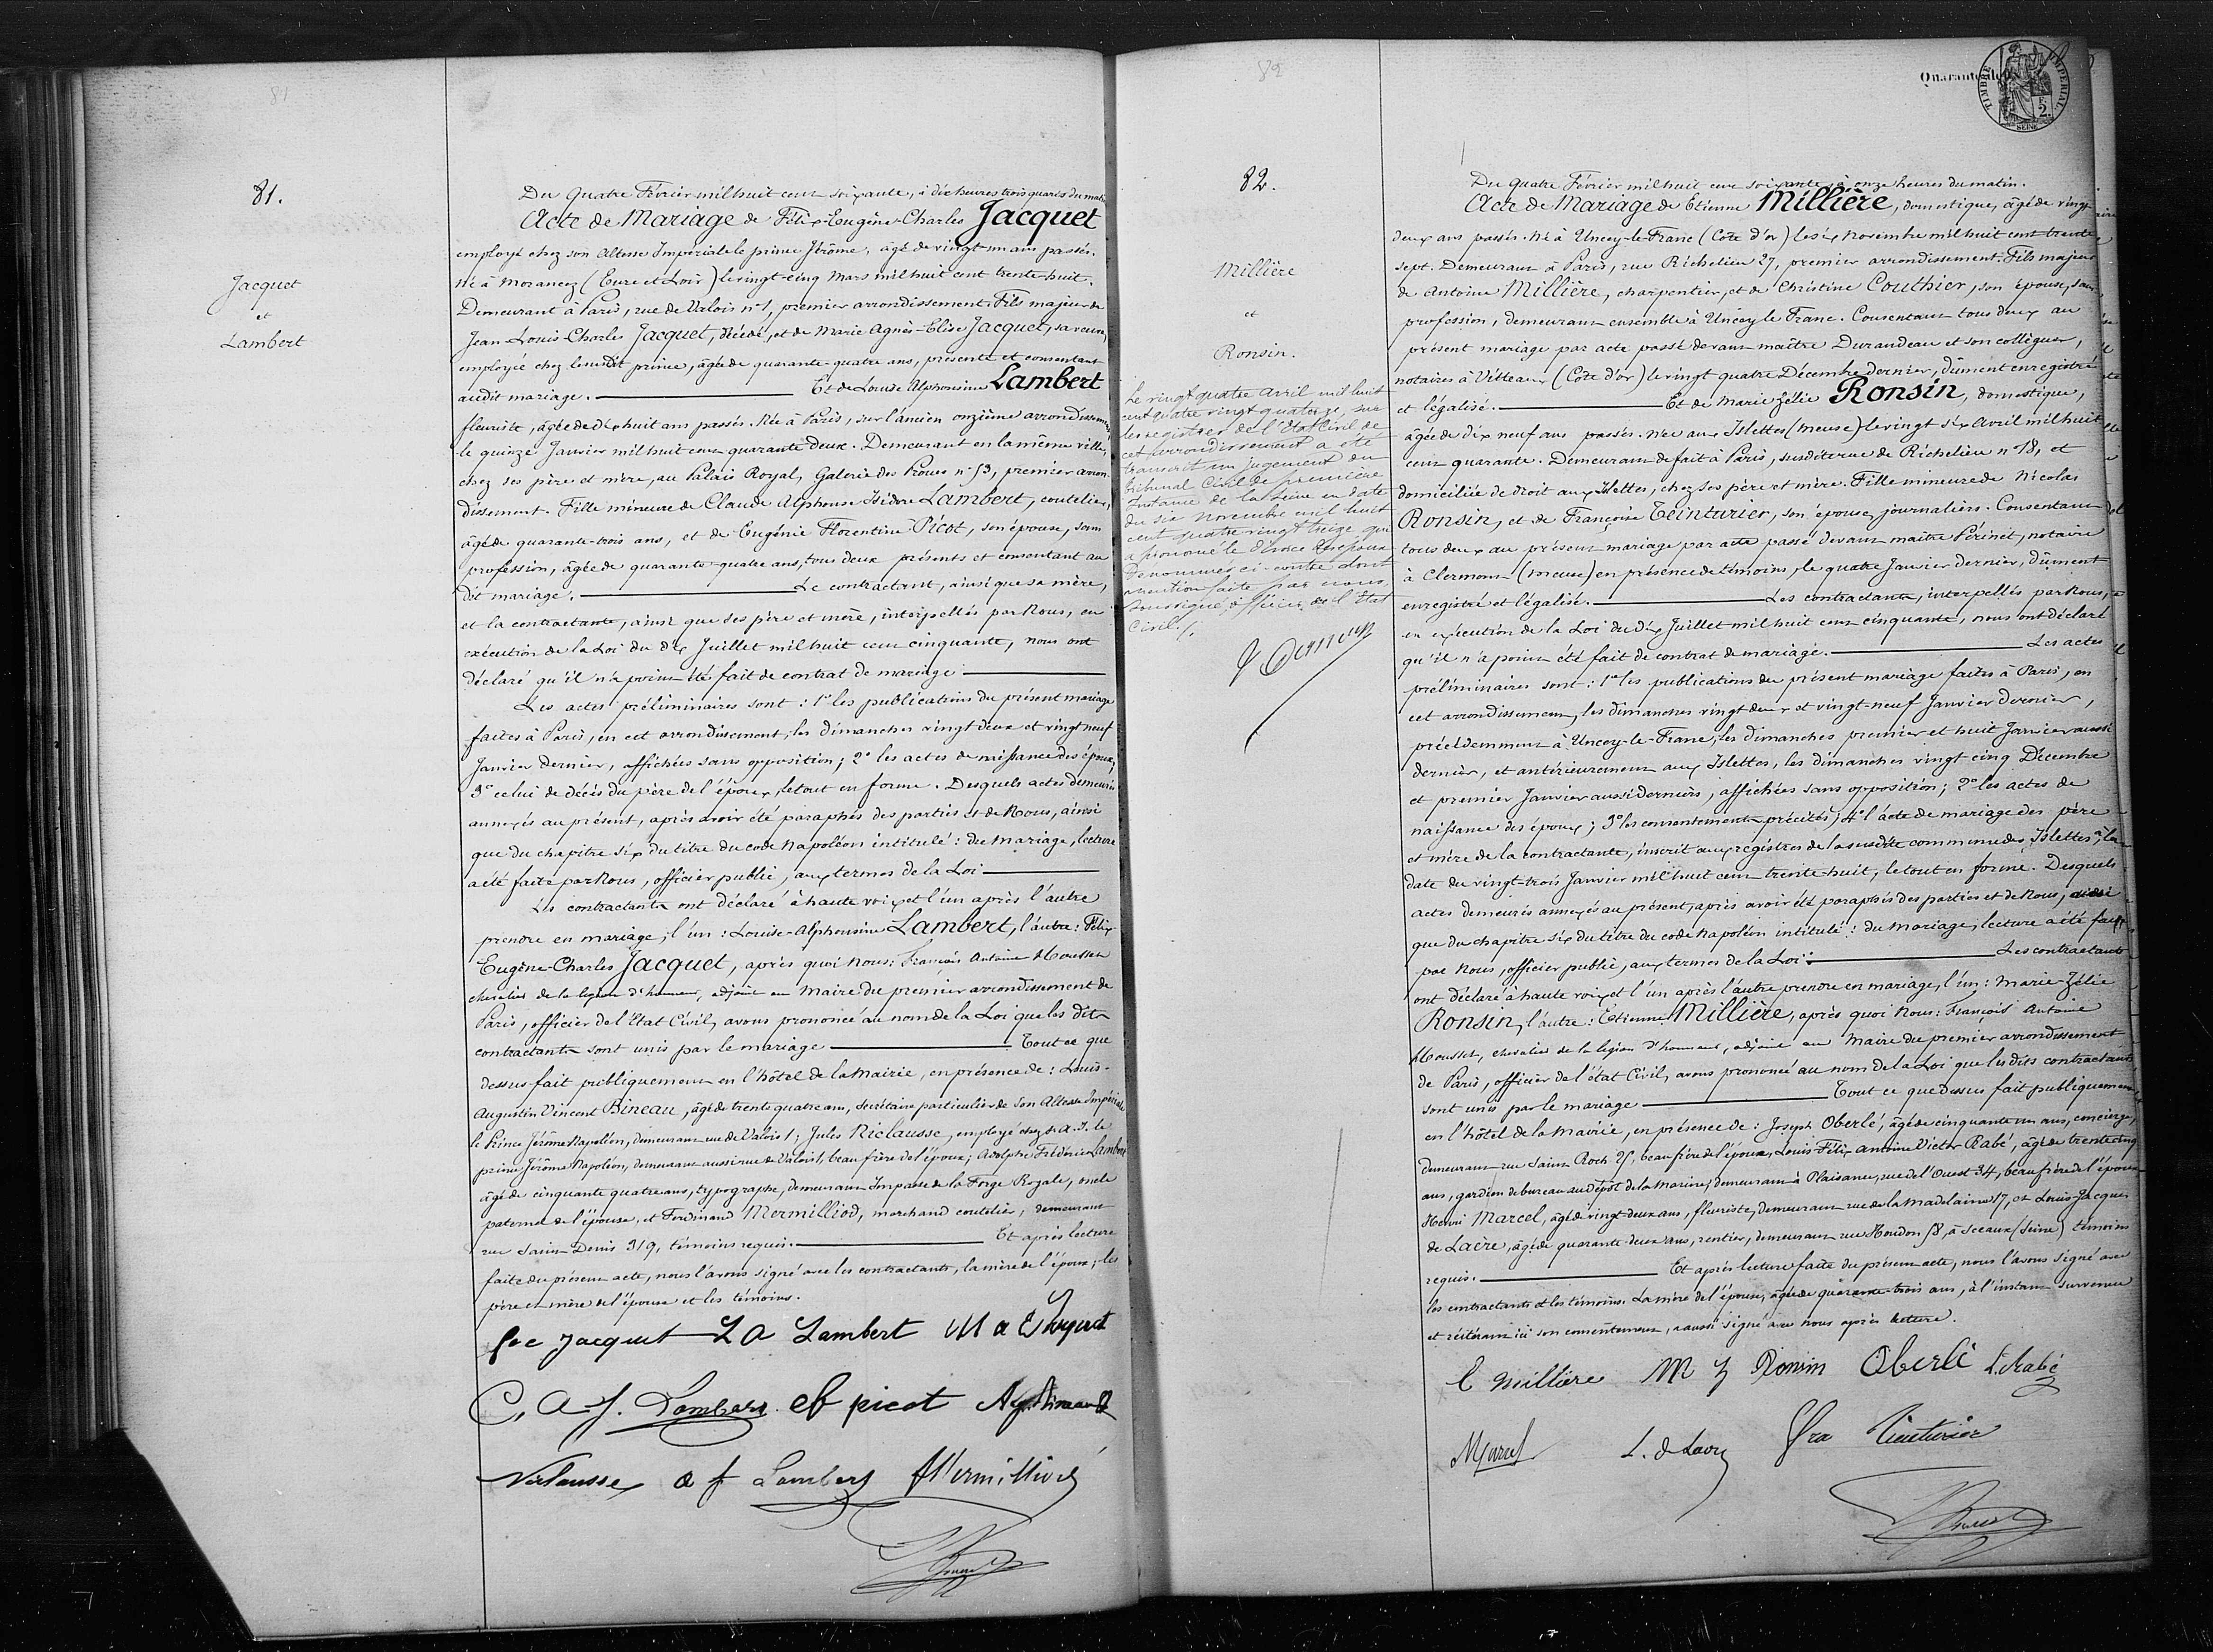 81
81.
Jacquet
et
Lambert
Du quatre Février mil huit cent soixante, à dix heures trois quarts du matin
Acte de Mariage de Félix-Eugène-Charles Jacquet
employé chez son Altesse Impériale le prince Jérôme, âgé de vingt-un ans passés.
Né à Morancez (Eure et Loir) le vingt-cinq Mars mil huit cent trente-huit.
Demeurant à Paris, rue de Valois n° 1, premier arrondissement. Fils majeur de
Jean-Louis-Charles Jacquet, décédé, et de Marie Agnès-Elise Jacquet, sa veuve,
employée chez le susdit prince, âgée de quarante-quatre ans, présente et consentant
audit mariage. Et de Louise Alphonsine Lambert
fleuriste, âgée de dix huit ans passés. Née à Paris, sur l'ancien onzième arrondissement,
le quinze Janvier mil huit cent quarante deux. Demeurant en la même ville,
chez ses père et mère, au Palais Royal, Galerie des Proues n° 13, premier arron
dissement. Fille mineure de Claude Alphonse Isidore Lambert, coutelier,
âgé de quarante-trois ans, et de Eugénie Florentine Picot, son épouse, sans
profession, âgée de quarante-quatre ans, tous deux présents et consentant au
dit mariage. Le contractant, ainsi que sa mère,
et la contractante, ainsi que ses père et mère, interpellés par Nous, en
exécution de la Loi du dix Juillet mil huit cent cinquante, nous ont
déclaré qu'il n'a point été fait de contrat de mariage
Les actes préliminaires sont : 1° les publications du présent mariage
faites à Paris, en cet arrondissement, les dimanches vingt deux et vingt neuf
Janvier dernier, affichées sans opposition ; 2° les actes de naissance des époux ;
3° celui de décès du père de l'époux, le tout en forme. Desquels actes demeurés
annexés au présent, après avoir été paraphés des parties et de Nous, ainsi
que du chapitre six du titre du code Napoléon intitulé : du Mariage, lecture
a été faite par Nous, officier public, aux termes de la Loi
Les contractants ont déclaré à haute voix et l'un après l'autre
prendre en mariage, l'un : Louise-Alphonsine Lambert, l'autre : Félix-
Eugène-Charles Jacquet, après quoi Nous : François Antoine Mousset
chevalier de la légion d'honneur, adjoint au Maire du premier arrondissement de
Paris, officier de l'Etat Civil, avons prononcé au nom de la Loi que les dits
contractants sont unis par le mariage Tout ce que
dessus fait publiquement en l'hôtel de la Mairie, en présence de : Louis-
Augustin Vincent Bineau, âgé de trente quatre ans, secrétaire particulier de Son Altesse Impériale
le Prince Jérôme Napoléon, demeurant rue de Valois 1 ; Jules Niclausse, employé chez S. A. I. le
prince Jérôme Napoléon, demeurant aussi rue de Valois 1, beau frère de l'époux ; Adolphe Frédéric Lambert
âgé de cinquante quatre ans, typographe, demeurant Impasse de la Forge Royale, oncle
paternel de l'épouse, et Ferdinand Mermilliod, marchand coutelier, demeurant
rue Saint Denis 319, témoins requis. Et après lecture
faite du présent acte, nous l'avons signé avec les contractants, la mère de l'époux, les
père et mère de l'épouse et les témoins.
fec Jacquet L A Lambert M a E Jacquet
C. A. J. Lambert ef picot
Niclausse a f Lambert Mermilliod
82
82.
Millière
et
Ronsin.
Le vingt quatre Avril mil huit
cent quatre vingt quatorze, sur
les registres de l'Etat Civil de
cet arrondissement a été
transcrit un jugement du
tribunal Civil de première
Instance de la Seine en date
du six Novembre mil huit
cent quatre vingt treize qui
a prononcé le divorce des époux
dénommés ci-contre dont
mention faite par nous,
soussigné, officier de l'Etat
Civil ./.
TIMBRE IMPERIAL
SEINE
Du quatre Février mil huit cent soixante, à onze heures du matin.
Acte de Mariage de Etienne Millière, domestique, âgé de vingt
deux ans passés. Né à Uncey-le-Franc (Côte d'or) le six Novembre mil huit cent trente
sept. Demeurant à Paris, rue Richelieu 27, premier arrondissement. Fils majeur
de Antoine Millière, charpentier, et de Christine Couthier, son épouse, sans
profession, demeurant ensemble à Uncey le Franc. Consentant tous deux au
présent mariage par acte passé devant maître Durandeau et son collègue,
notaires à Vitteaux (Côte d'or) le vingt quatre Décembre dernier, dûment enregistré
et légalisé. Et de Marie Zélie Ronsin, domestique,
âgée de dix neuf ans passés. Née aux Islettes (Meuse) le vingt six Avril mil huit
cent quarante. Demeurant de fait à Paris, susdite rue de Richelieu n° 18, et
domiciliée de droit aux Islettes, chez ses père et mère. Fille mineure de Nicolas
Ronsin, et de Françoise Teinturier, son épouse, journaliers. Consentant
tous deux au présent mariage par acte passé devant maître Périnet, notaire
à Clermont (Meuse) en présence de témoins, le quatre Janvier dernier, dûment
enregistré et légalisé. Les contractants, interpellés par Nous,
en exécution de la Loi du dix Juillet mil huit cent cinquante, nous ont déclaré
qu'il n'a point été fait de contrat de mariage. Les actes
préliminaires sont : 1° les publications du présent mariage faites à Paris, en
cet arrondissement, les dimanches vingt deux et vingt-neuf Janvier dernier,
précédemment à Uncey-le-Franc, les dimanches premier et huit Janvier aussi
dernier, et antérieurement aux Islettes, les dimanches vingt cinq Décembre
et premier Janvier aussi derniers, affichées sans opposition ; 2° les actes de
naissance des époux ; 3° les consentements précités ; 4° l'acte de mariage des père
et mère de la contractante, inscrit aux registres de la susdite commune des Islettes, à la
date du vingt-trois Janvier mil huit cent trente-huit, le tout en forme. Desquels
actes demeurés annexés au présent, après avoir été paraphés des parties et de Nous, ainsi
que du chapitre six du titre du code Napoléon intitulé : du Mariage, lecture a été faite
par Nous, officier public, aux termes de la Loi : Les contractants
ont déclaré à haute voix et l'un après l'autre prendre en mariage, l'un : Marie-Zélie
Ronsin, l'autre : Etienne Millière, après quoi Nous : François Antoine
Mousset, chevalier de la légion d'honneur, adjoint au Maire du premier arrondissement
de Paris, officier de l'état Civil, avons prononcé au nom de la Loi que les dits contractants
sont unis par le mariage Tout ce que dessus fait publiquement
en l'hôtel de la Mairie, en présence de : Joseph Oberlé, âgé de cinquante un ans, concierge,
demeurant rue Saint Roch 25, beau frère de l'époux, Louis Félix Antoine Victor Rabé, âgé de trente cinq
ans, gardien de bureau au Dépôt de la Marine, demeurant à Plaisance, rue de l'Ouest 34, beau frère de l'époux
Henri Marcel, âgé de vingt-deux ans, fleuriste, demeurant rue de la Madelaine 17, et Louis-Jacques
de Laère, âgé de quarante-deux ans, rentier, demeurant rue Houdon 18, à Sceaux (Seine) témoins
requis. Et après lecture faite du présent acte, nous l'avons signé avec
les contractants et les témoins. La mère de l'épouse, âgée de quarante-trois ans, à l'instant survenue
et réitérant ici son consentement, a aussi signé avec nous après lecture.
E Millière M Z Ronsin Oberlé L. Rabé
Marcel Fra Tinturier